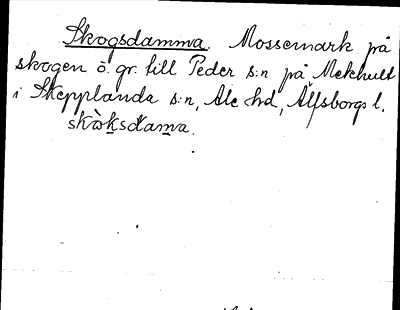 Skogsdamma. Mossemark på
skogen ö. gr. till Peder s:n på Mekhult
i Skepplanda s:n, Ale hd, Älfsborgs l.
skòksdama.